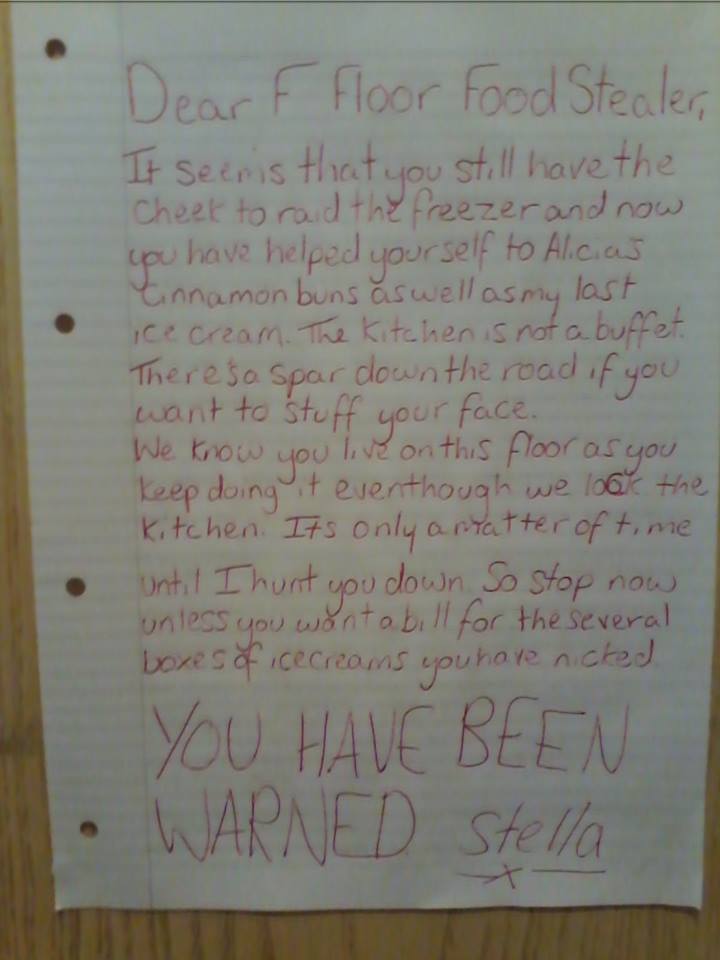 Dear F Floor Food Stealer,
It seems that you still have the
cheek to raid the freezer and now
you have helped yourself to Alicias
Cinnamon buns as well as my last
ice cream. The kitchen is not a buffet.
There's a spar down the road if you
want to stuff your face.
We know you live on this floor as you
keep doing it eventhough we lock the
kitchen. It's only a matter of time
until I hunt you down. So stop now
unless you want a bill for the several
boxes of icecreams you have nicked
YOU HAVE BEEN
WARNED Stella
x